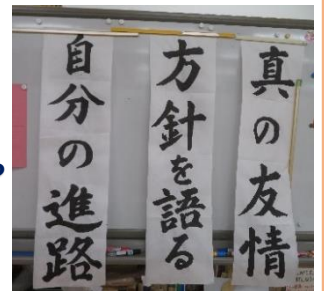 真の友情
方針を語る
自分の進路